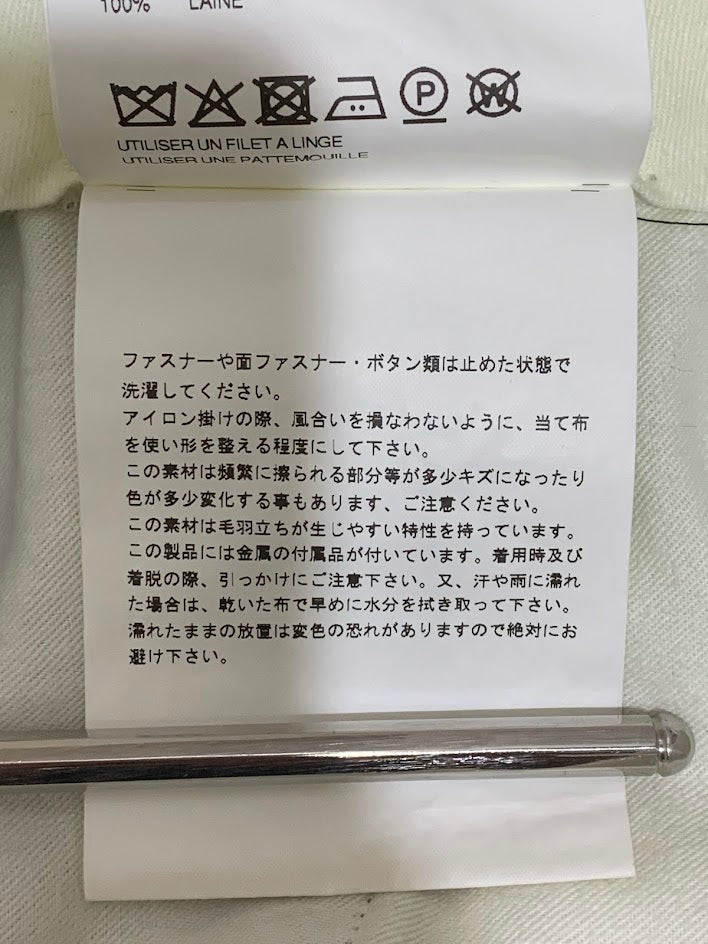 100% LAINE
P
W
UTILISER UN FILET A LINGE
UTILISER UNE PATTEMOUILLE
ファスナーや面ファスナー・ボタン類は止めた状態で
洗濯してください。
アイロン掛けの際、風合いを損なわないように、当て布
を使い形を整える程度にして下さい。
この素材は頻繁に擦られる部分等が多少キズになったり
色が多少変化する事もあります、ご注意ください。
この素材は毛羽立ちが生じやすい特性を持っています。
この製品には金属の付属品が付いています。着用時及び
着脱の際、引っかけにご注意下さい。又、汗や雨に濡れ
た場合は、乾いた布で早めに水分を拭き取って下さい。
濡れたままの放置は変色の恐れがありますので絶対にお
避け下さい。